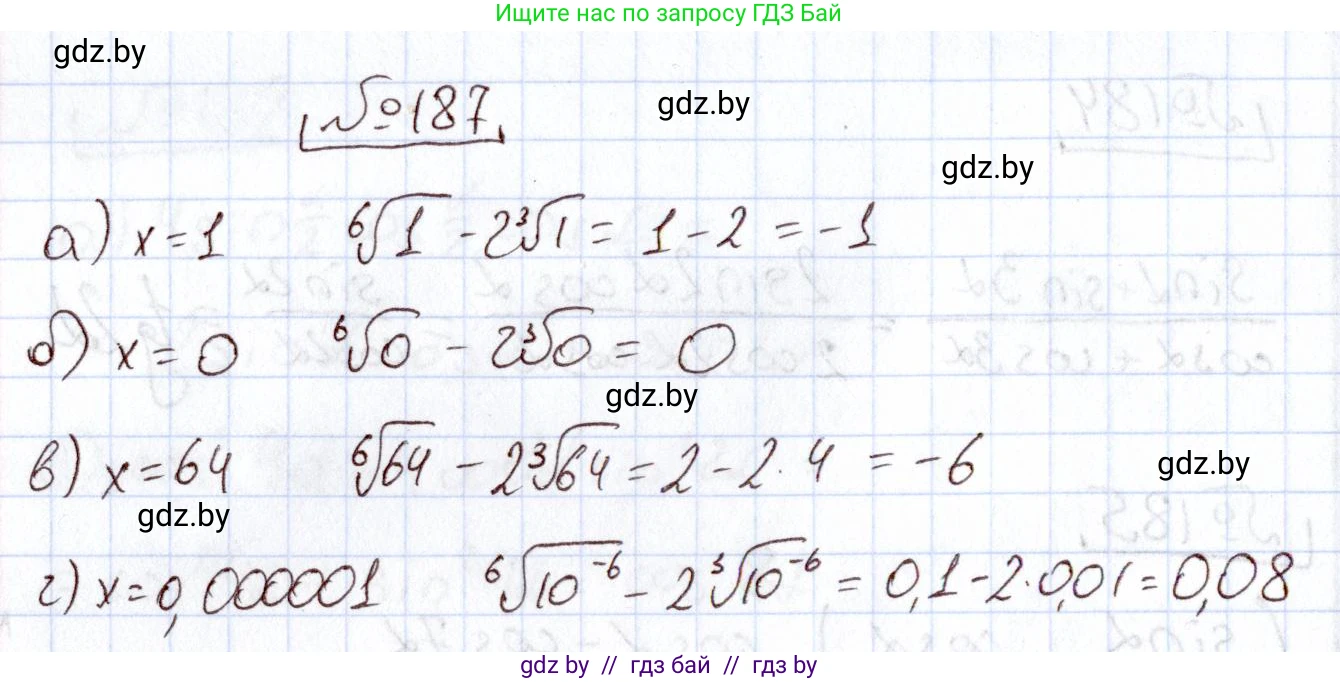 Ищите нас по запросу ГДЗ Бай
gdz.by
№187
gdz.by
gdz.by
а) x=1 ⁶√1 - 2³√1 = 1 - 2 = -1
б) x=0 ⁶√0 - 2³√0 = 0
gdz.by
в) x=64 ⁶√64 - 2³√64 = 2 - 2·4 = -6
gdz.by
gdz.by
г) x=0,000001 ⁶√10⁻⁶ - 2³√10⁻⁶ = 0,1 - 2·0,01 = 0,08
gdz by // гдз бай // гдз by